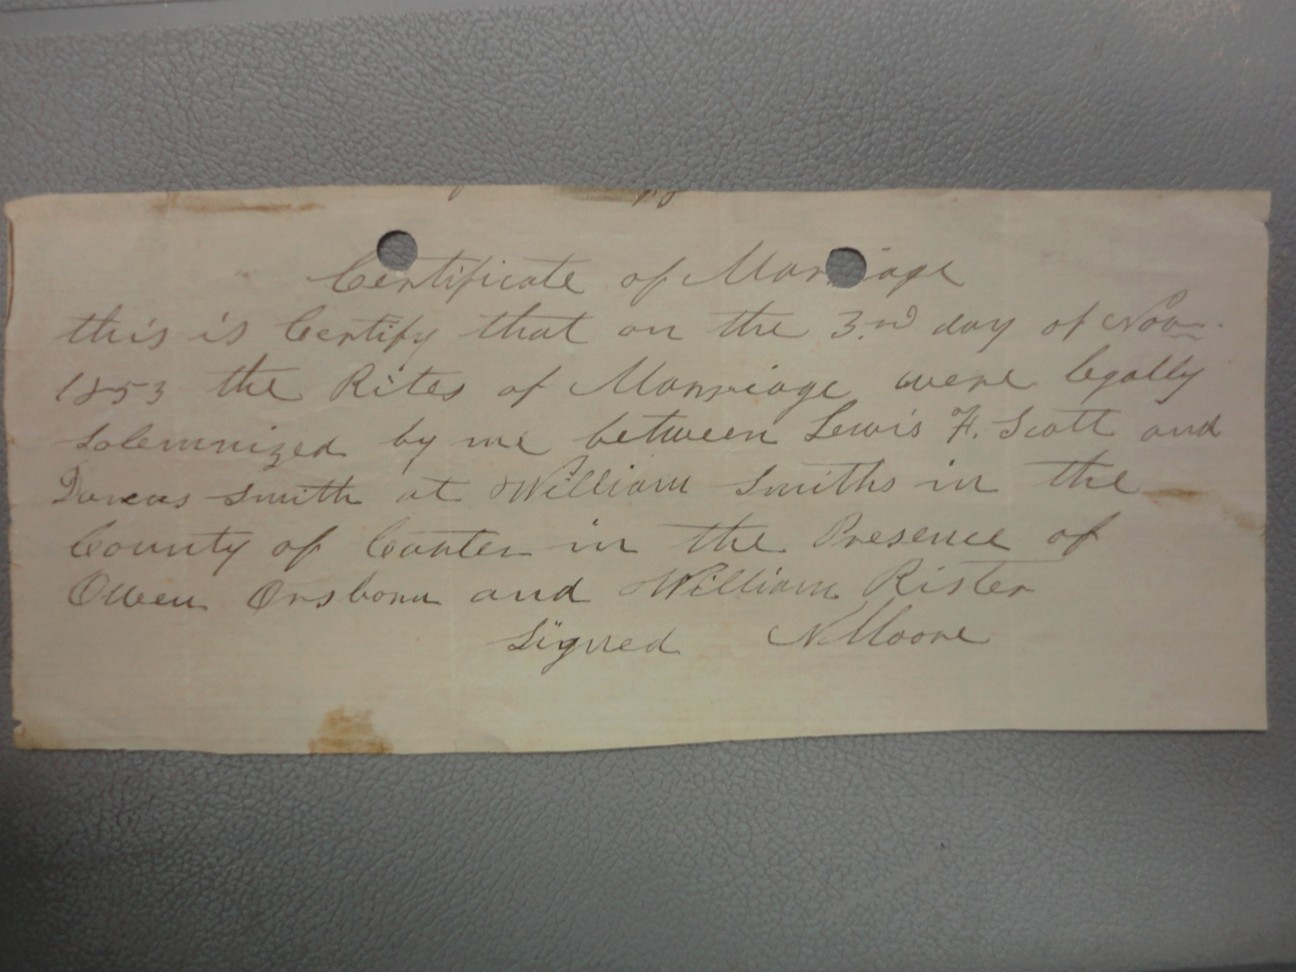 Certificate of Marriage
this is Certify that on the 3.rd day of Nov.
1853 the Rites of Marriage were legally
Solemnized by me between Lewis F. Scott and
Dorcas Smith at William Smiths in the
County of Carter in the Presence of
Owen Orsborn and William Rister
Signed N Moore